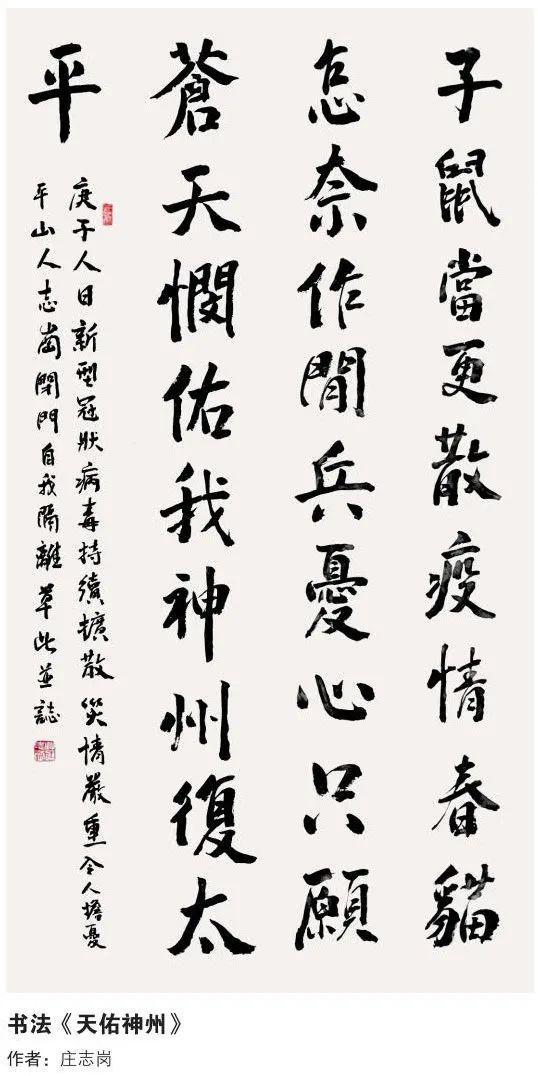 子鼠當更散疫情春貓
怎奈作閒兵憂心只願
蒼天憫佑我神州復太
平
庚子人日新型冠狀病毒持續擴散災情嚴重令人擔憂
平山人志崗閉門自我隔離草此並誌
书法《天佑神州》
作者：庄志岗